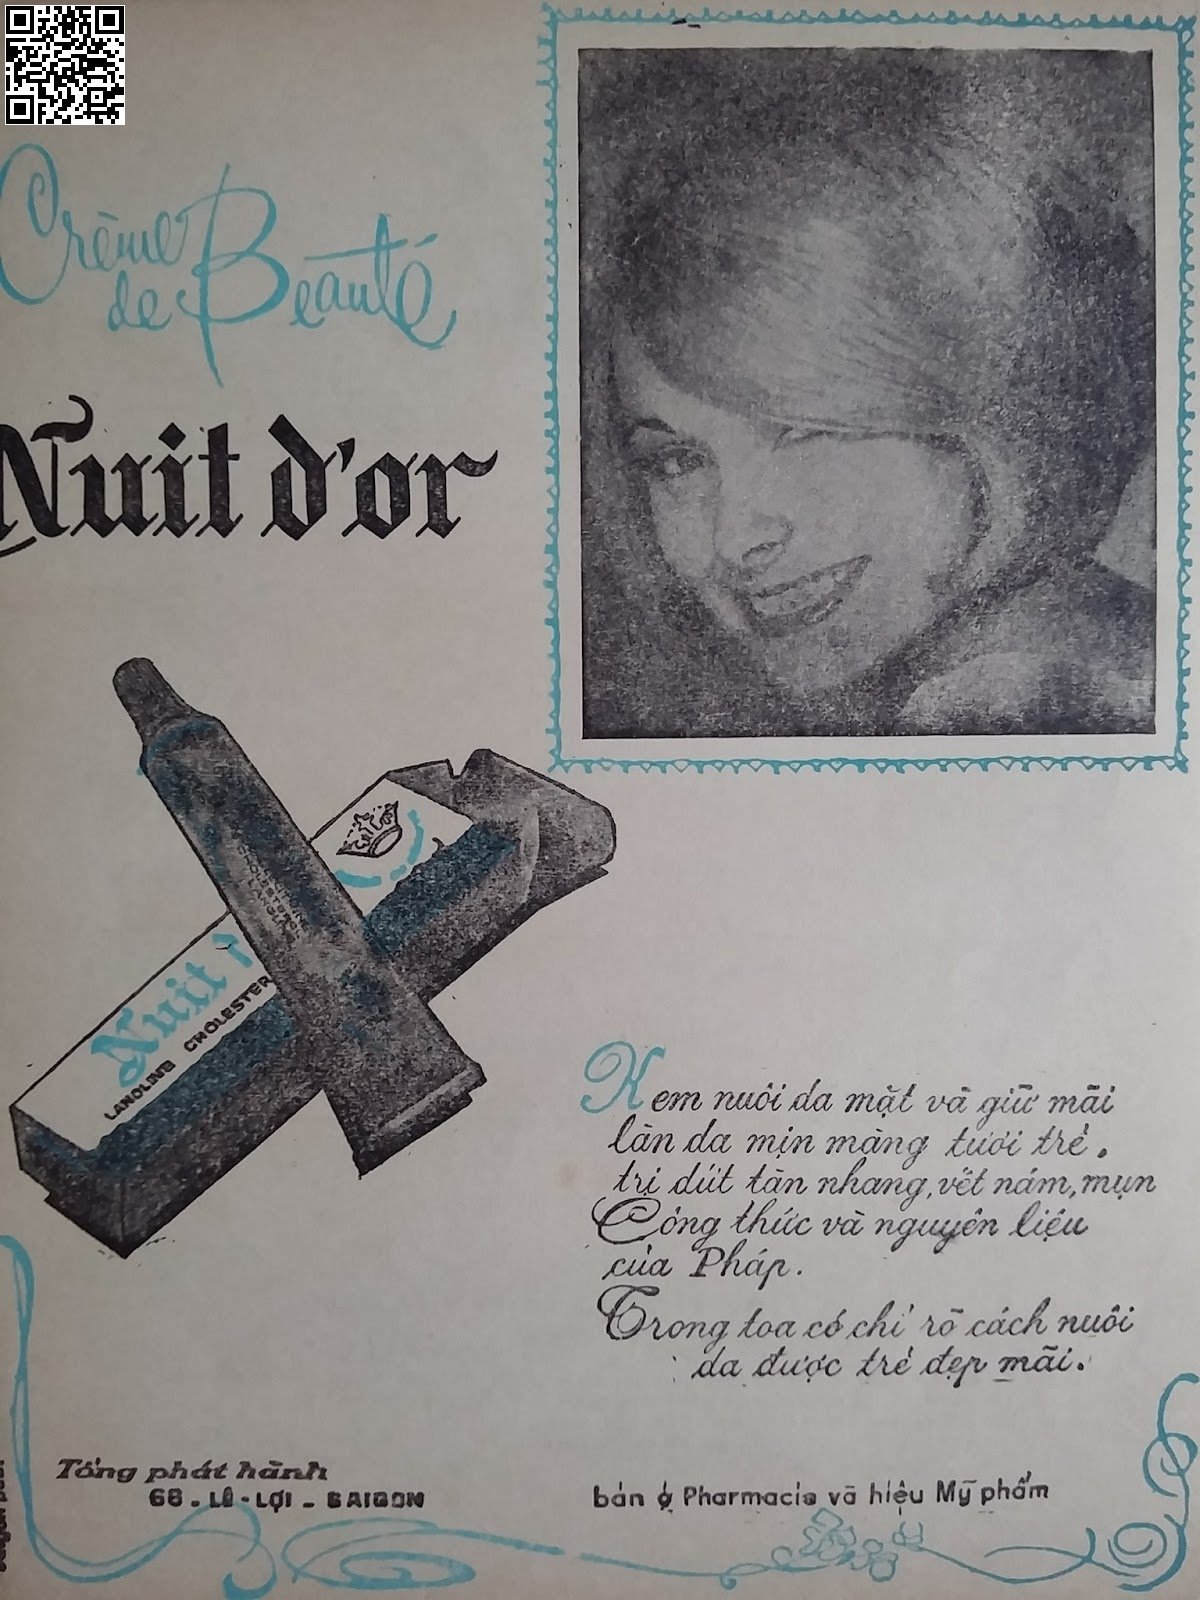 Crème
de Beauté
Nuit d'or
LECITHINE
CHOLESTEROL
LANOLINE
Nuit
LANOLINE CHOLESTER
Kem nuôi da mặt và giữ mãi
làn da mịn màng tươi trẻ.
trị dứt tàn nhang, vết nám, mụn
Công thức và nguyên liệu
của Pháp.
Trong toa có chỉ rõ cách nuôi
da được trẻ đẹp mãi.
Tổng phát hành
68 - LÊ-LỢI - SAIGON
bán ở Pharmacie và hiệu Mỹ phẩm